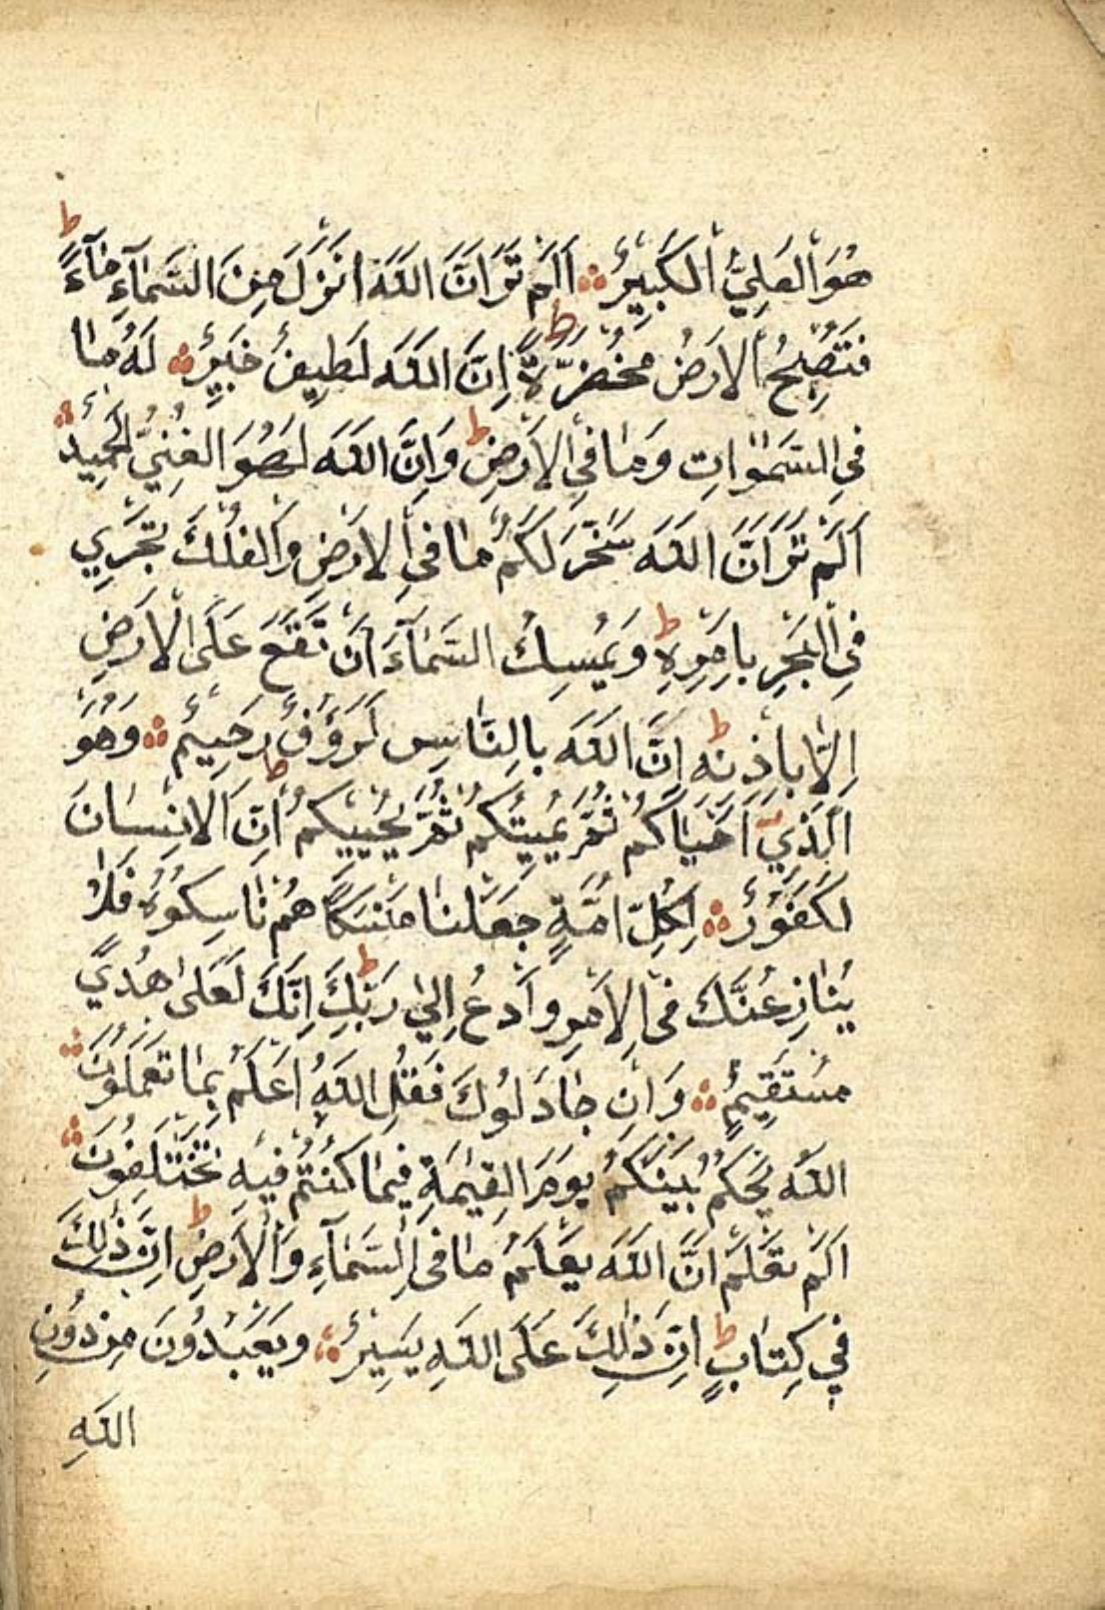 هُوَ الْعَلِيُّ الْكَبِيرُ ۞ اَلَمْ تَرَ اَنَّ اللّٰهَ اَنْزَلَ مِنَ السَّمَآءِ مَآءً ط
فَتُصْبِحُ الْاَرْضُ مُخْضَرَّةً ط اِنَّ اللّٰهَ لَطِيفٌ خَبِيرٌ ۞ لَهُ مَا
فِي السَّمٰوَاتِ وَمَا فِي الْاَرْضِ ط وَاِنَّ اللّٰهَ لَهُوَ الْغَنِيُّ الْحَمِيدُ ۞
اَلَمْ تَرَ اَنَّ اللّٰهَ سَخَّرَ لَكُمْ مَا فِي الْاَرْضِ وَالْفُلْكَ تَجْرِي
فِي الْبَحْرِ بِاَمْرِهِ ط وَيُمْسِكُ السَّمَآءَ اَنْ تَقَعَ عَلَى الْاَرْضِ
اِلَّا بِاِذْنِهِ ط اِنَّ اللّٰهَ بِالنَّاسِ لَرَؤُفٌ رَحِيمٌ ۞ وَهُوَ
الَّذِيٓ اَحْيَاكُمْ ثُمَّ يُمِيتُكُمْ ثُمَّ يُحْيِيكُمْ ط اِنَّ الْاِنْسَانَ
لَكَفُورٌ ۞ لِكُلِّ اُمَّةٍ جَعَلْنَا مَنْسَكًا هُمْ نَاسِكُوهُ فَلَا
يُنَازِعُنَّكَ فِي الْاَمْرِ وَادْعُ اِلٰي رَبِّكَ ط اِنَّكَ لَعَلٰى هُدًي
مُسْتَقِيمٍ ۞ وَاِنْ جَادَلُوكَ فَقُلِ اللّٰهُ اَعْلَمُ بِمَا تَعْمَلُونَ ۞
اللّٰهُ يَحْكُمُ بَيْنَكُمْ يَوْمَ الْقِيٰمَةِ فِيمَا كُنْتُمْ فِيهِ تَخْتَلِفُونَ ۞
اَلَمْ تَعْلَمْ اَنَّ اللّٰهَ يَعْلَمُ مَا فِي السَّمَآءِ وَالْاَرْضِ ط اِنَّ ذٰلِكَ
فِي كِتَابٍ ط اِنَّ ذٰلِكَ عَلَى اللّٰهِ يَسِيرٌ ۞ وَيَعْبُدُونَ مِنْ دُونِ
اللّٰهِ